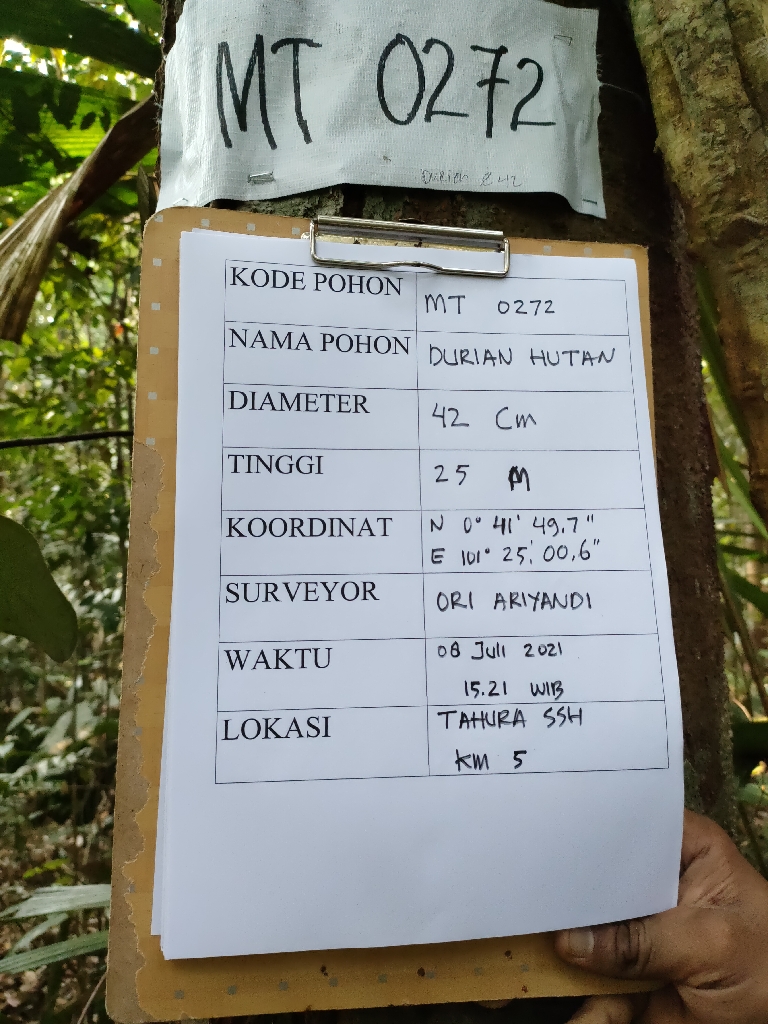 MT 0272
Durian ⌀ 42
KODE POHON MT 0272
NAMA POHON DURIAN HUTAN
DIAMETER 42 Cm
TINGGI 25 M
KOORDINAT N 0° 41' 49,7"
E 101° 25' 00,6"
SURVEYOR ORI ARIYANDI
WAKTU 08 Juli 2021
15.21 WIB
LOKASI TAHURA SSH
KM 5